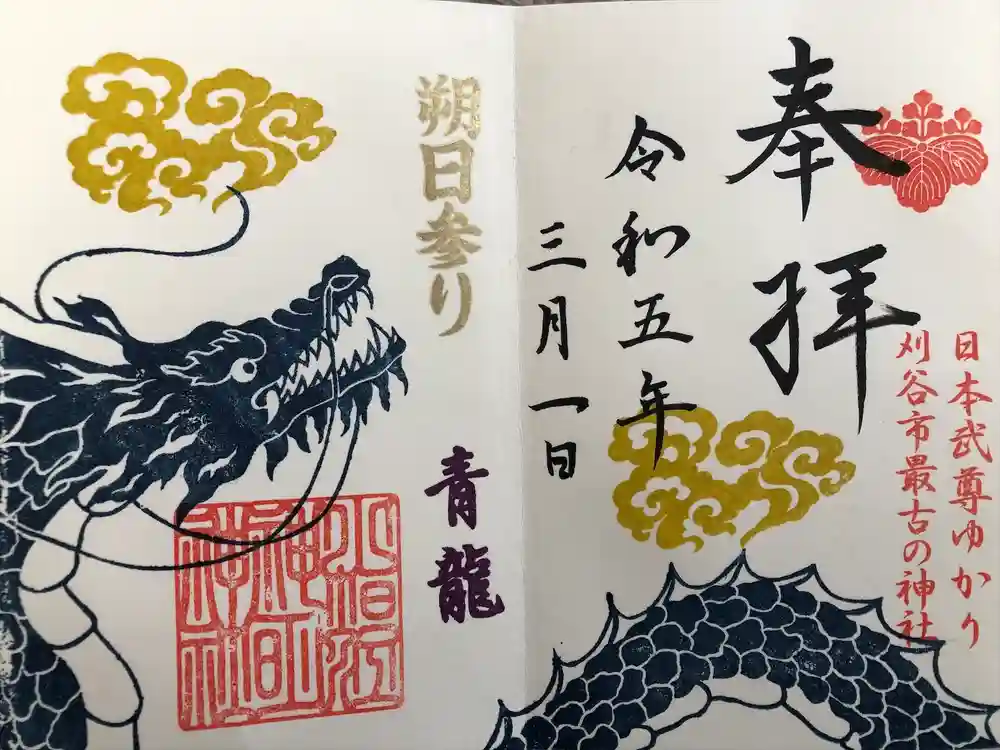 奉拝
日本武尊ゆかり
刈谷市最古の神社
令和五年
三月一日
朔日参り
青龍